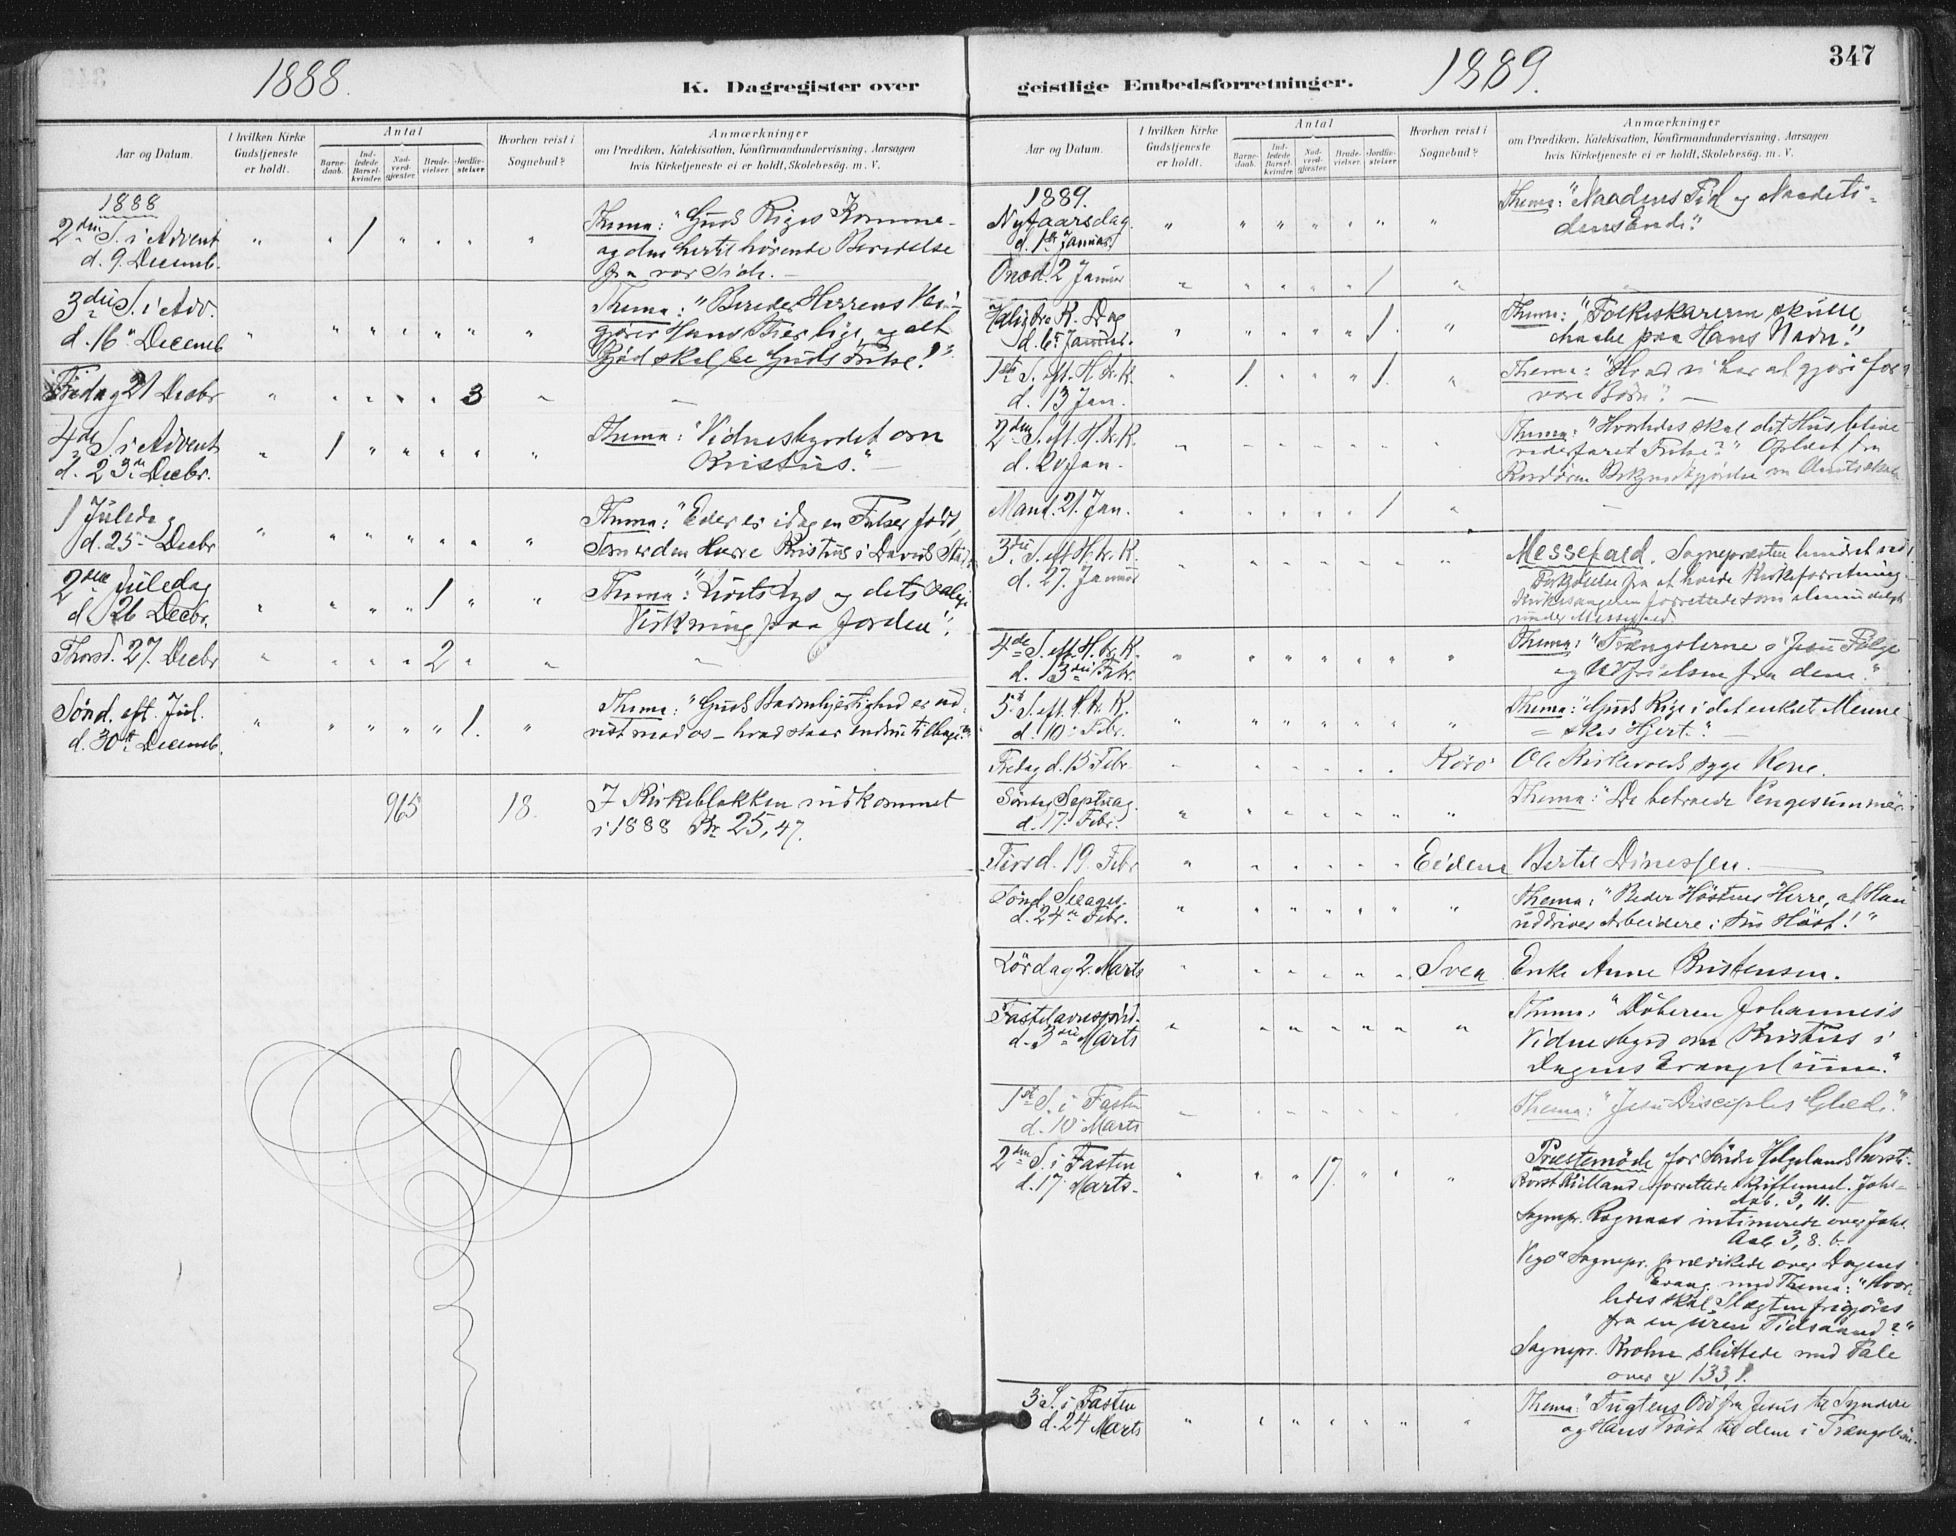 1888.
K. Dagregister over
Aar og Datum.
I hvilken Kirke
Gudstjeneste
er holdt.
Antal
Barne-
daab.
Ind-
ledede
Barsel-
kvinder.
Nad-
verd-
gjæster.
Brude-
vielser.
Jordfæ-
stelser.
Hvorhen reist i
Sognebud?
Anmærkninger
om Prædiken, Katekisation, Konfirmandundervisning, Aarsagen
hvis Kirketjeneste ei er holdt, Skolebesøg. m. V.
1888
2den S. i Advent
d. 9. Decemb.
" " 1 " " " "
Thema: "Guds Riges Komme
og den hertil hörende Beredelse
fra vor Side.
3die S. i Adv.
d. 16de Decemb
" " " " " " "
Thema: "Bereder Herrens Vei
gjörer Hans Stier lige, og alt
Kjød skal se Guds Frelse!"
Fredag 21 Decbr
" " " " " 3 "
4de S. i Advent
d. 23de Decbr.
" 1 " " " " "
Thema: "Vidnesbyrdet om
Kristus."
1 Juledag
d. 25 Decbr
" " " " " " "
Thema: "Eder er idag en Frelser født,
Som er den Herre Kristus i Davids Stad
2den Juledag
d. 26 Decbr.
" " " " 1 " "
Thema: "Livets Lys og dets salige
Virkning paa Jorden".
Thorsd. 27. Decbr
" " " " 2 " "
Sönd. eft. Jul.
d. 30te Decemb.
" " " " " 1. "
Thema: "Guds Barmhjertighed er ud-
vist mod os - hvad staar endnu tilbage?"
965 18.
I Kirkeblokken indkommet
i 1888 Kr 25,47.
347
1889.
geistlige Embedsforretninger.
Aar og Datum.
I hvilken Kirke
Gudstjeneste
er holdt.
Antal
Barne-
daab.
Ind-
ledede
Barsel-
kvinder.
Nad-
verd-
gjæster.
Brude-
vielser.
Jordfæ-
stelser.
Hvorhen reist i
Sognebud?
Anmærkninger
om Prædiken, Katekisation, Konfirmandundervisning, Aarsagen
hvis Kirketjeneste ei er holdt, Skolebesøg. m. V.
1889.
Nytaarsdag
d. 1ste Januar
" " " " " " "
Thema: "Naadens Tid og Naadeti-
dens Ende".
Onsd. 2 Januar
" " " " " 1 "
Hellig tre K. Dag
d. 6te Januar.
" " " " " 1 "
Thema: "Folkeskarerne skulle
haabe paa Hans Navn".
1ste S. eft. H. tr. K.
d. 13 Jan.
1. " " " 1. "
Thema: "Hvad vi har at gjöre for
vore Börn".
2den S. eft. H. tr. K.
d. 20 Jan.
" " " " " " "
Thema: "Hvorledes skal det Hus blive
vederfaret Frelse?" Oplæst fra
Kordören Bekjendtgjörelse om
Mand. 21. Jan.
" " " " " 1 "
3die S. eft. H. tr. K.
d. 27. Januar
" " " " " " "
Messefald. Sognepræsten hindret ved
Forkjölelse fra at holde Kirkeforretning.
Kirkesangeren forrettede som almindeligt
under Messefald.
4de S. eft. H. tr. K.
d. 3die Febr.
" " " " " " "
Thema: "Trængslerne i Jesu Følge
og Udfrielsen fra dem."
5te S. eft. H. tr. K.
d. 10. Febr.
" " " " " " "
Thema: "Guds Rige i det enkelte Menne-
skes Hjerte".
Fredag d. 15 Febr.
Rörö
Ole Kirkevolds syge Kone.
Söndag Septuag.
d. 17. Febr.
" " " " " " "
Thema: "De betroede Pengesummer."
Tirsd. 19. Febr
" " " " "
Eidem
Bertel Dinessen.
Sönd. Sexages.
d. 24de Febr.
" " " " " " "
Thema: "Beder Höstens Herre, at Han
uddriver Arbeidere i sin Höst!"
Lördag 2. Marts
" " " " " "
Svea
Enke Anne Kristensen.
Fastelavnssönd.
d. 3die Marts
" " " " " " "
Thema: "Döberen Johannes's
Vidnesbyrd om Kristus i
Dagens Evangelium."
1ste S. i Fasten
d. 10 Marts
Thema: "Jesu Disciples Glæde."
2den S. i Fasten
d. 17. Marts.
" " " 17. " " "
Præstemöde for Söndre Helgelands Provsti.
Provst Kielland forrettede Skriftemaal. Johs.
Aab. 3, 11.
Sognepr. Rognaas intimerede over Johs.
Aab 3, 8. b.
Vegö Sognepr. prædikede over Dagens
Evang. med Thema: "Hvor-
ledes skal Slægten frigjöres
fra en uren Tidsaand?"
Sognepr. Krohn sluttede med Tale
over ψ 133,1.
3. S. i Fasten
d. 24 Marts
" " " " " " "
Thema: "Tugtens Ord fra Jesus til Syndere
og Hans Tröst til dem i Trængslerne.